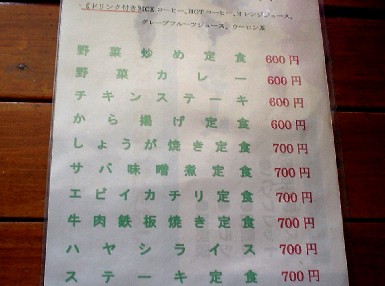 《ドリンク付き》ICEコーヒー、HOTコーヒー、オレンジジュース、
グレープフルーツジュース、ウーロン茶
野菜炒め定食 600円
野菜カレー 600円
チキンステーキ 600円
から揚げ定食 600円
しょうが焼き定食 700円
サバ味噌煮定食 700円
エビイカチリ定食 700円
牛肉鉄板焼き定食 700円
ハヤシライス 700円
ステーキ定食 700円